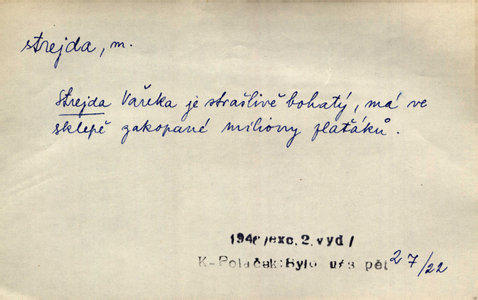 strejda, m.
Strejda Vařeka je strašlivě bohatý, má ve
sklepě zakopané miliony zlaťáků.
1946 /exc. 2. vyd/
K. Poláček: Bylo nás pět 27/22